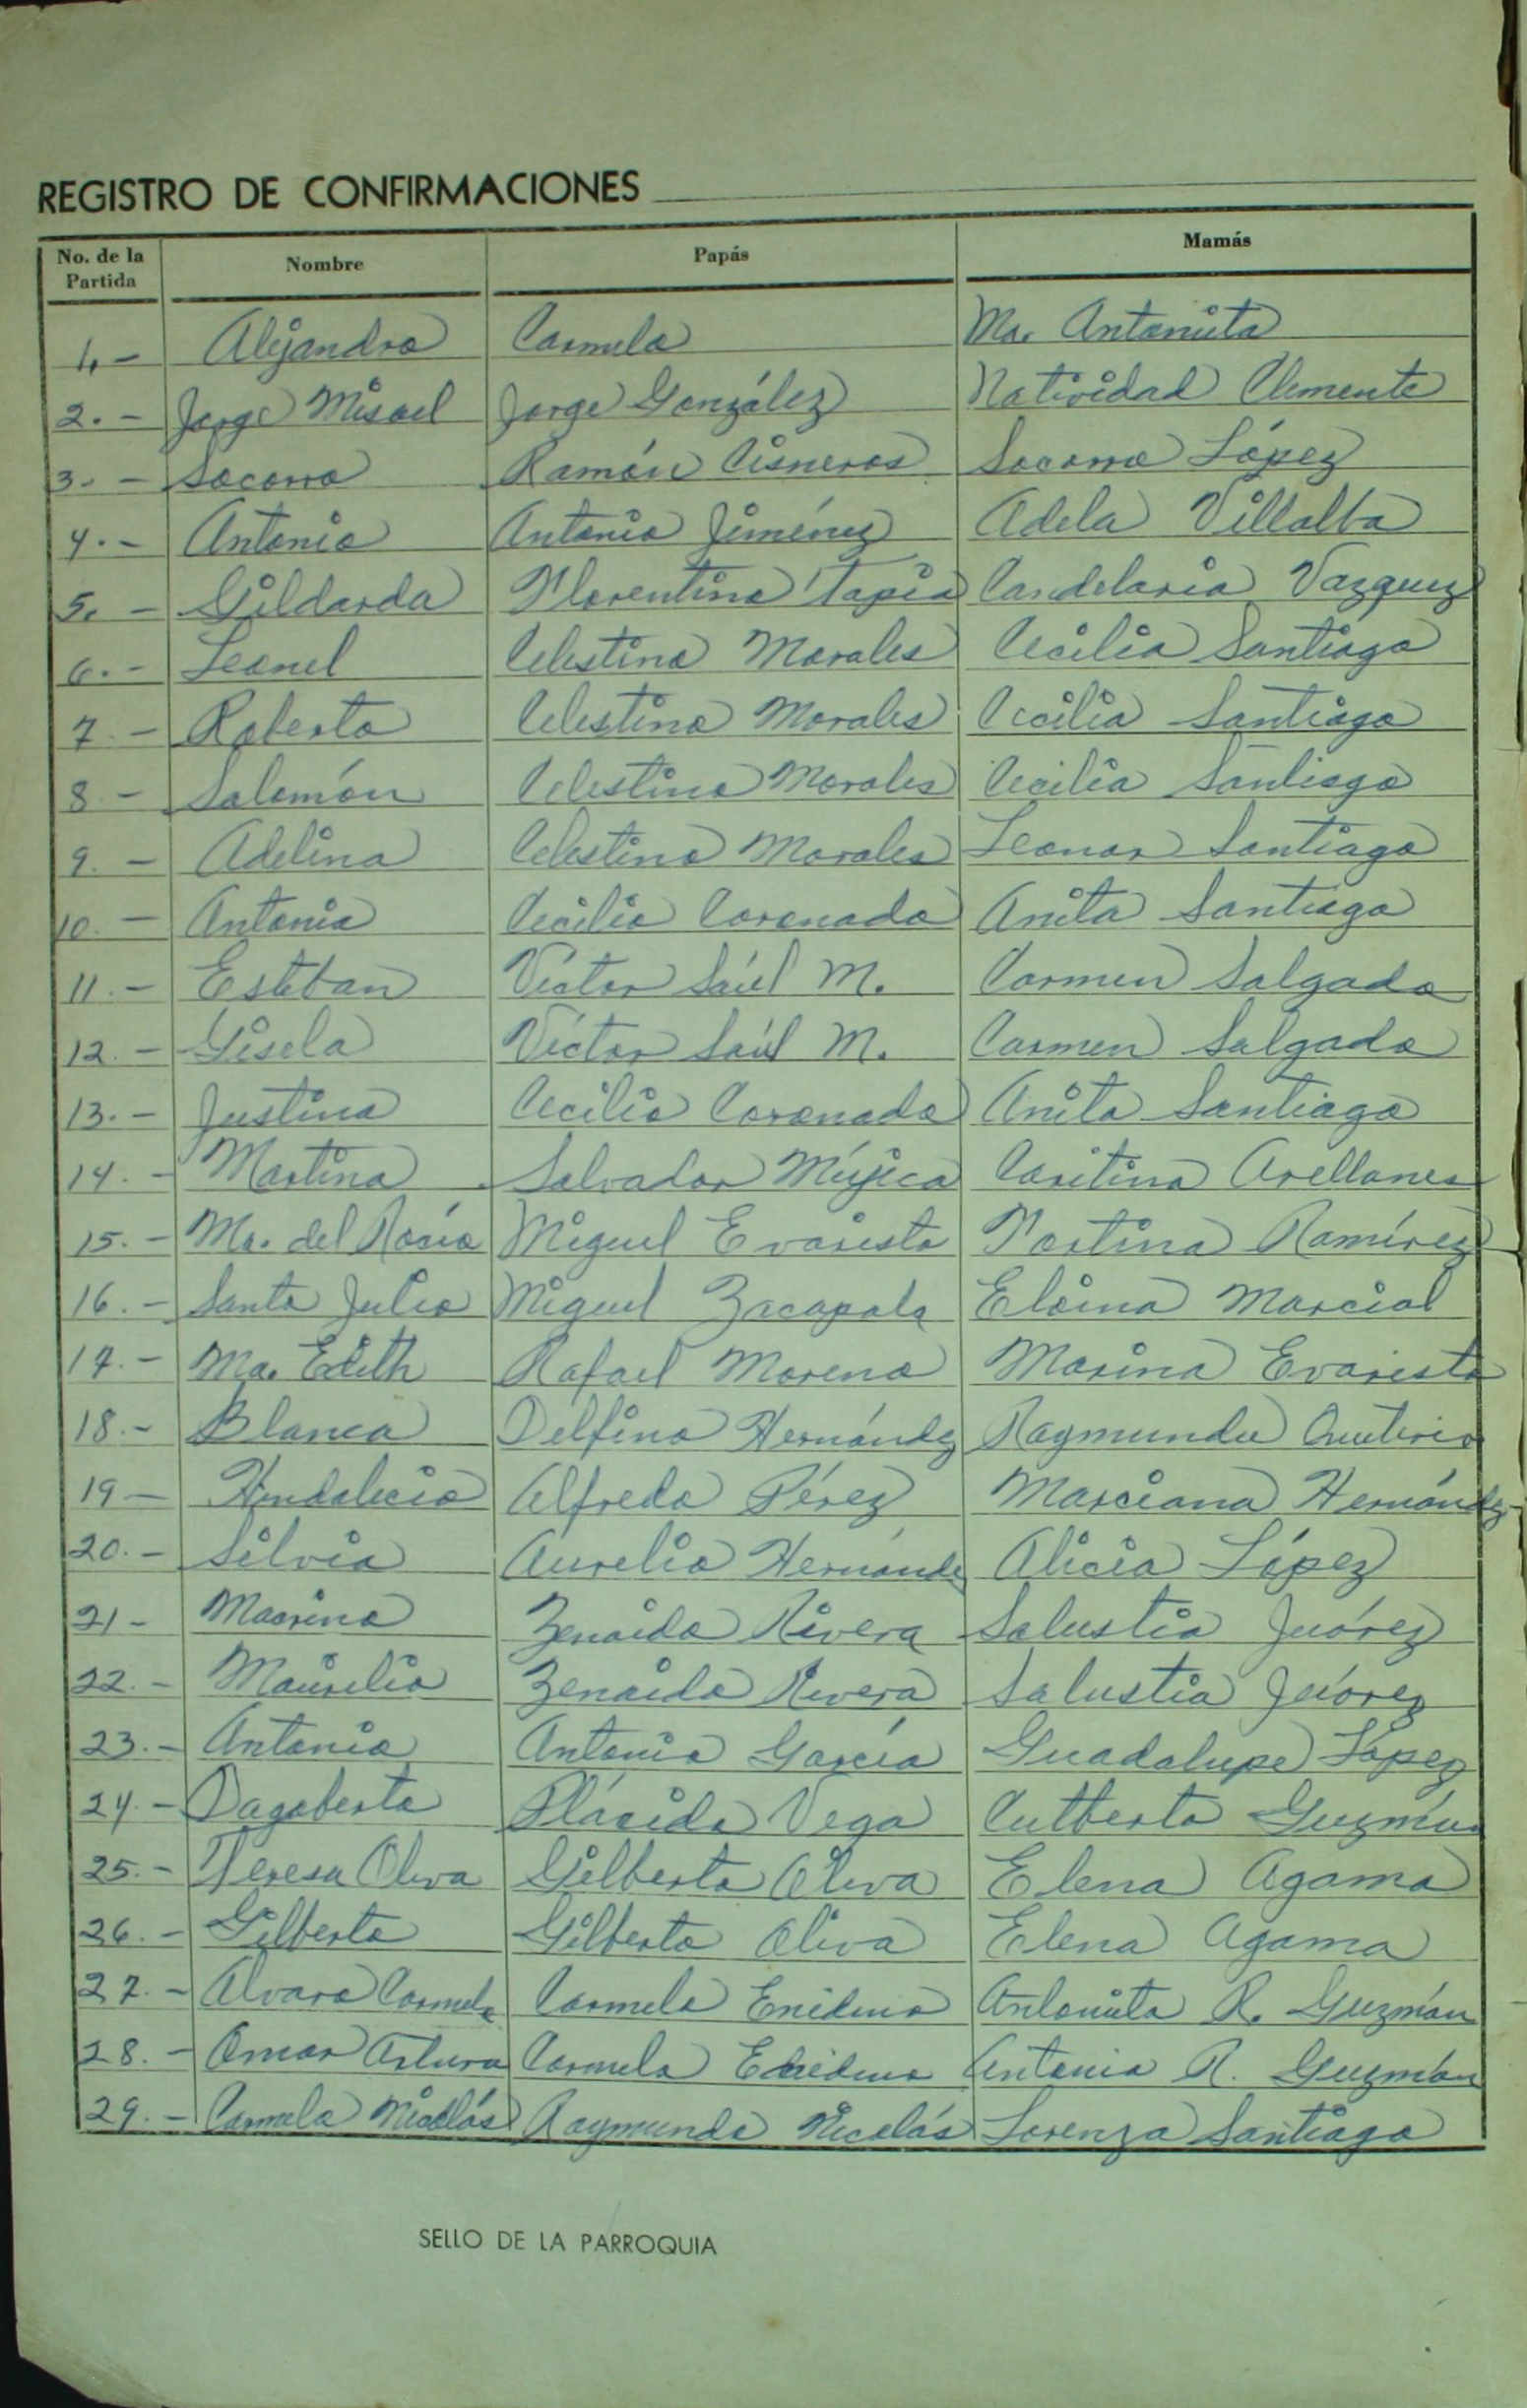 REGISTRO DE CONFIRMACIONES
No. de la Partida Nombre Papás Mamás
1.- Alejandro Carmelo Ma. Antonieta
2.- Jorge Misael Jorge González Natividad Clemente
3.- Socorro Ramón Cisneros Socorro López
4.- Antonio Antonio Jiménez Adela Villalba
5.- Gildarda Florentino Tapia Candelaria Vazquez
6.- Leonel Celestino Morales Cecilia Santiago
7.- Roberto Celestino Morales Cecilia Santiago
8.- Salomón Celestino Morales Cecilia Santiago
9.- Adelina Celestino Morales Leonor Santiago
10.- Antonia Cecilio Coronado Anita Santiago
11.- Esteban Víctor Saúl M. Carmen Salgado
12.- Gisela Víctor Saúl M. Carmen Salgado
13.- Justina Cecilio Coronado Anita Santiago
14.- Martina Salvador Mújica Caritina Arellanes
15.- Ma. del Rocío Miguel Evaristo Fortina Ramírez
16.- Santa Julia Miguel Zacapala Eloina Marcial
17.- Ma. Edith Rafael Moreno Marina Evaristo
18.- Blanca Delfino Hernández Raymunda
19- Hindalecio Alfredo Pérez Marciana Hernández
20.- Silvia Aurelio Hernánde Alicia López
21- Macrina Zenaido Rivera Salustia Juárez
22.- Maurilio Zenaido Rivera Salustia Juárez
23.- Antonia Antonio García Guadalupe López
24.- Dagoberto Plácido Vega Cutberta Guzmán
25.- Teresa Oliva Gilberto Oliva Elena Agama
26.- Gilberto Gilberto Oliva Elena Agama
27.- Alvaro Carmelo Carmelo Enedino Antonieta R. Guzmán
28.- Omar Arturo Carmelo Enedino Antonia R. Guzmán
29.- Carmela Nicolás Raymundo Nicolás Lorenza Santiago
SELLO DE LA PARROQUIA